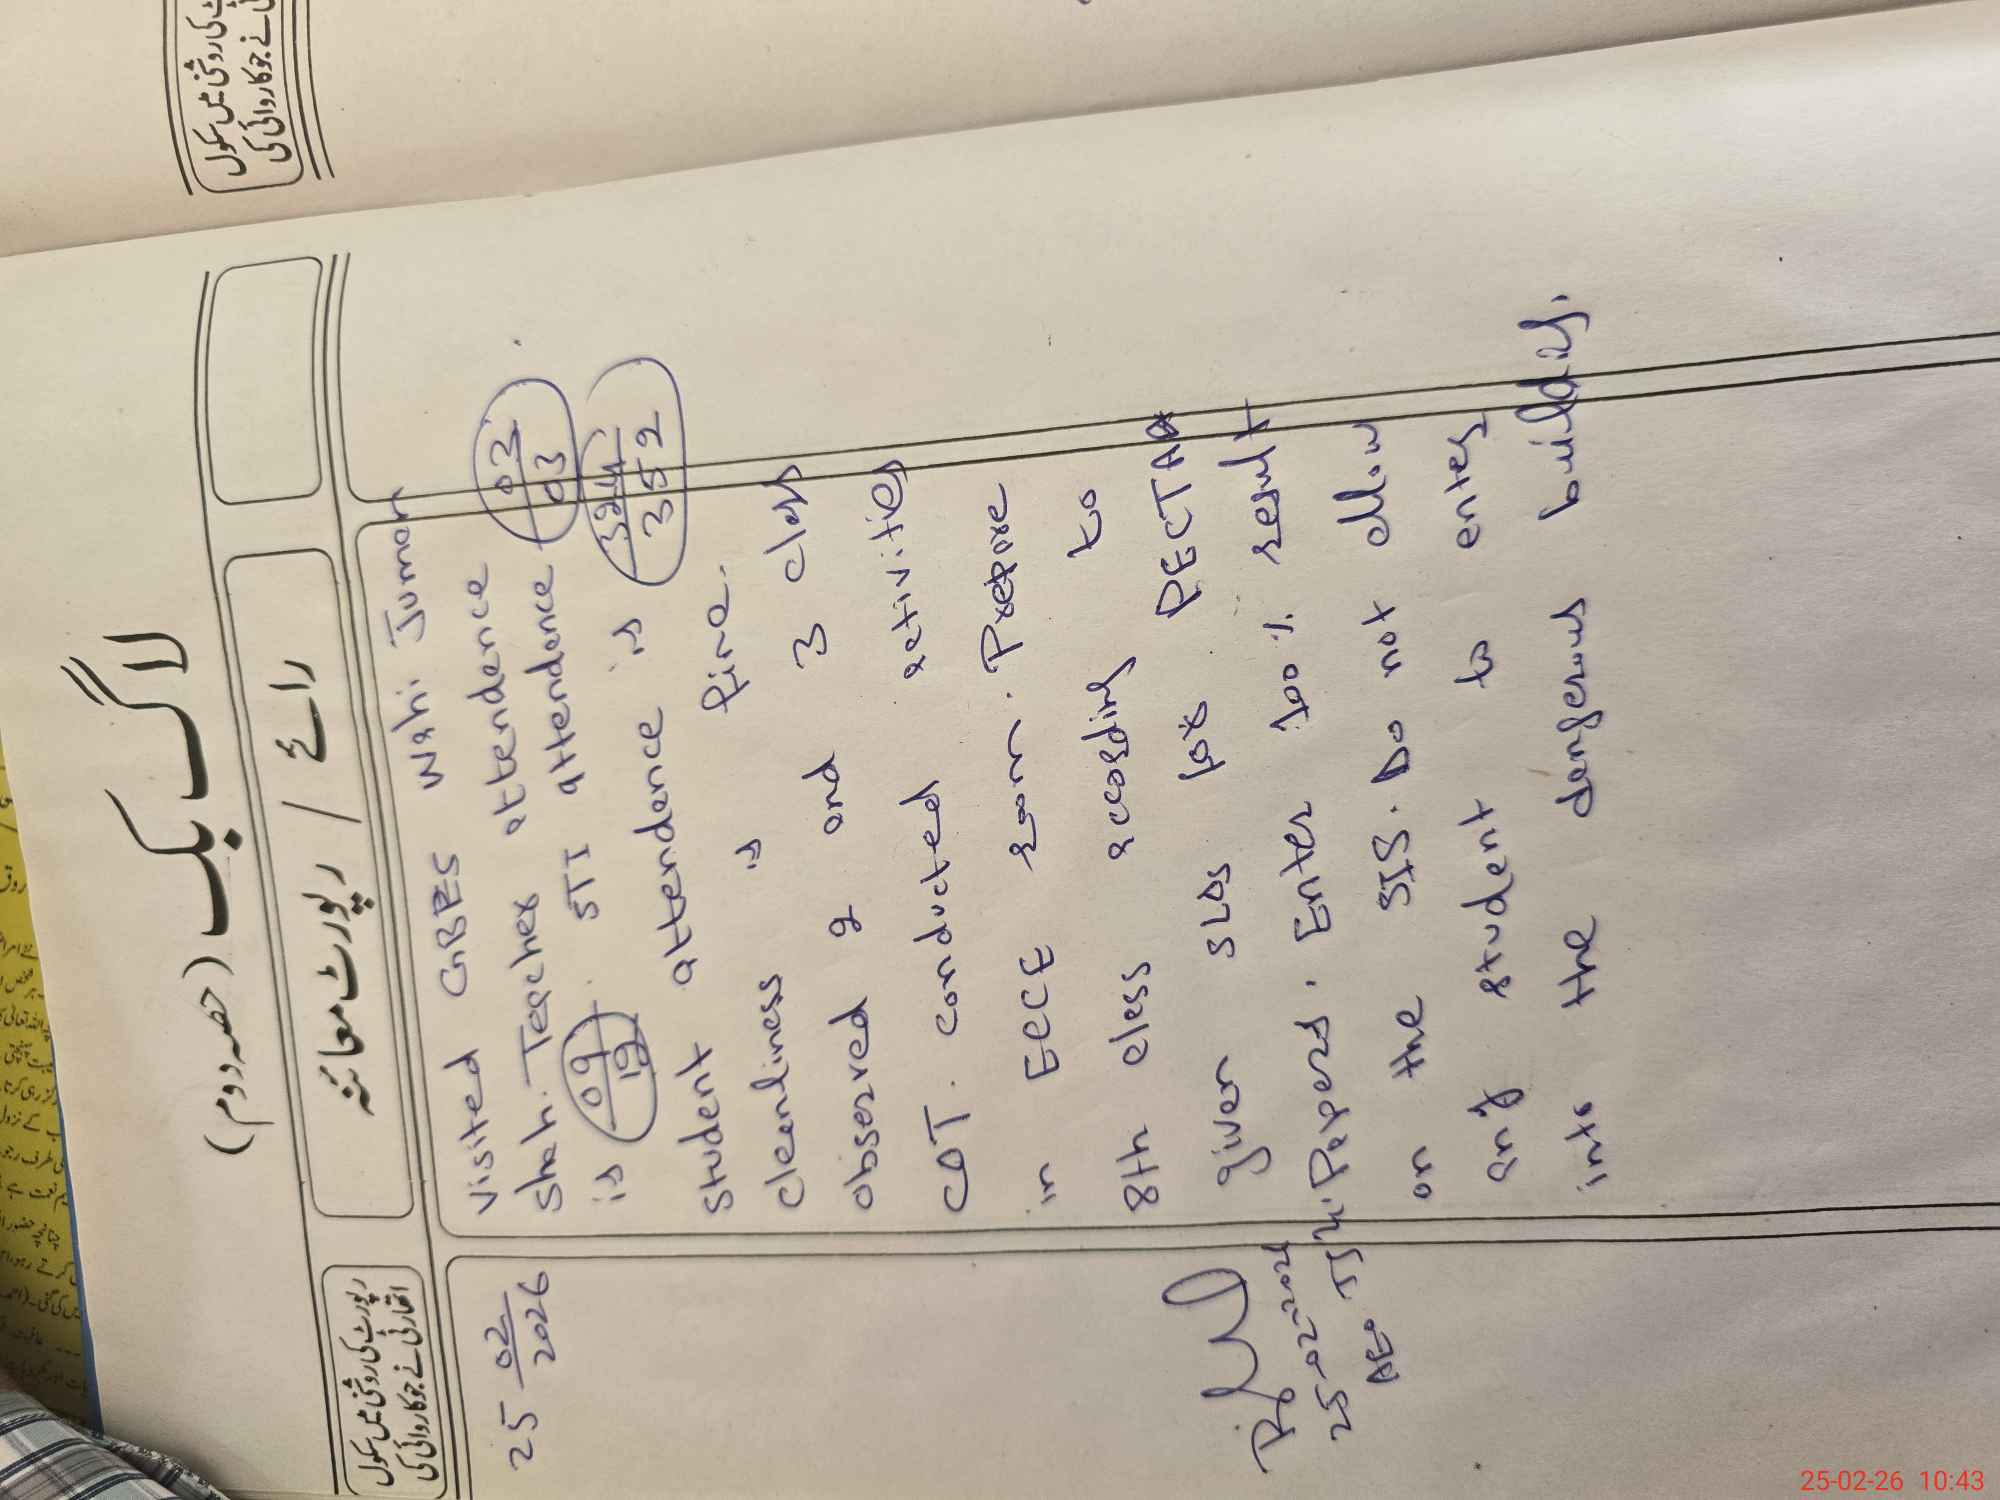 لاگ بک (حصہ دوم)
رپورٹ معائنہ / رائے
رپورٹ کی روشنی میں سکول
اتھارٹی نے جو کاروائی کی
25 02/2026
Visited GBPES Wahi Juman
Shah. Teacher attendence
is 09/12. STI attendence 02/03
student attendence is 324/352
cleanliness is fine.
observed 2 and 3 class
COT. conducted activities
in ECCE room. Prepare
8th class according to
given SLOs for PECTAA
Papers. Enter 100% result
on the SIS. Do not allow
any student to enter
into the dangerous building.
25-02-2026
AEO
رپورٹ کی روشنی میں سکول
نے جو کاروائی کی
25-02-26 10:43